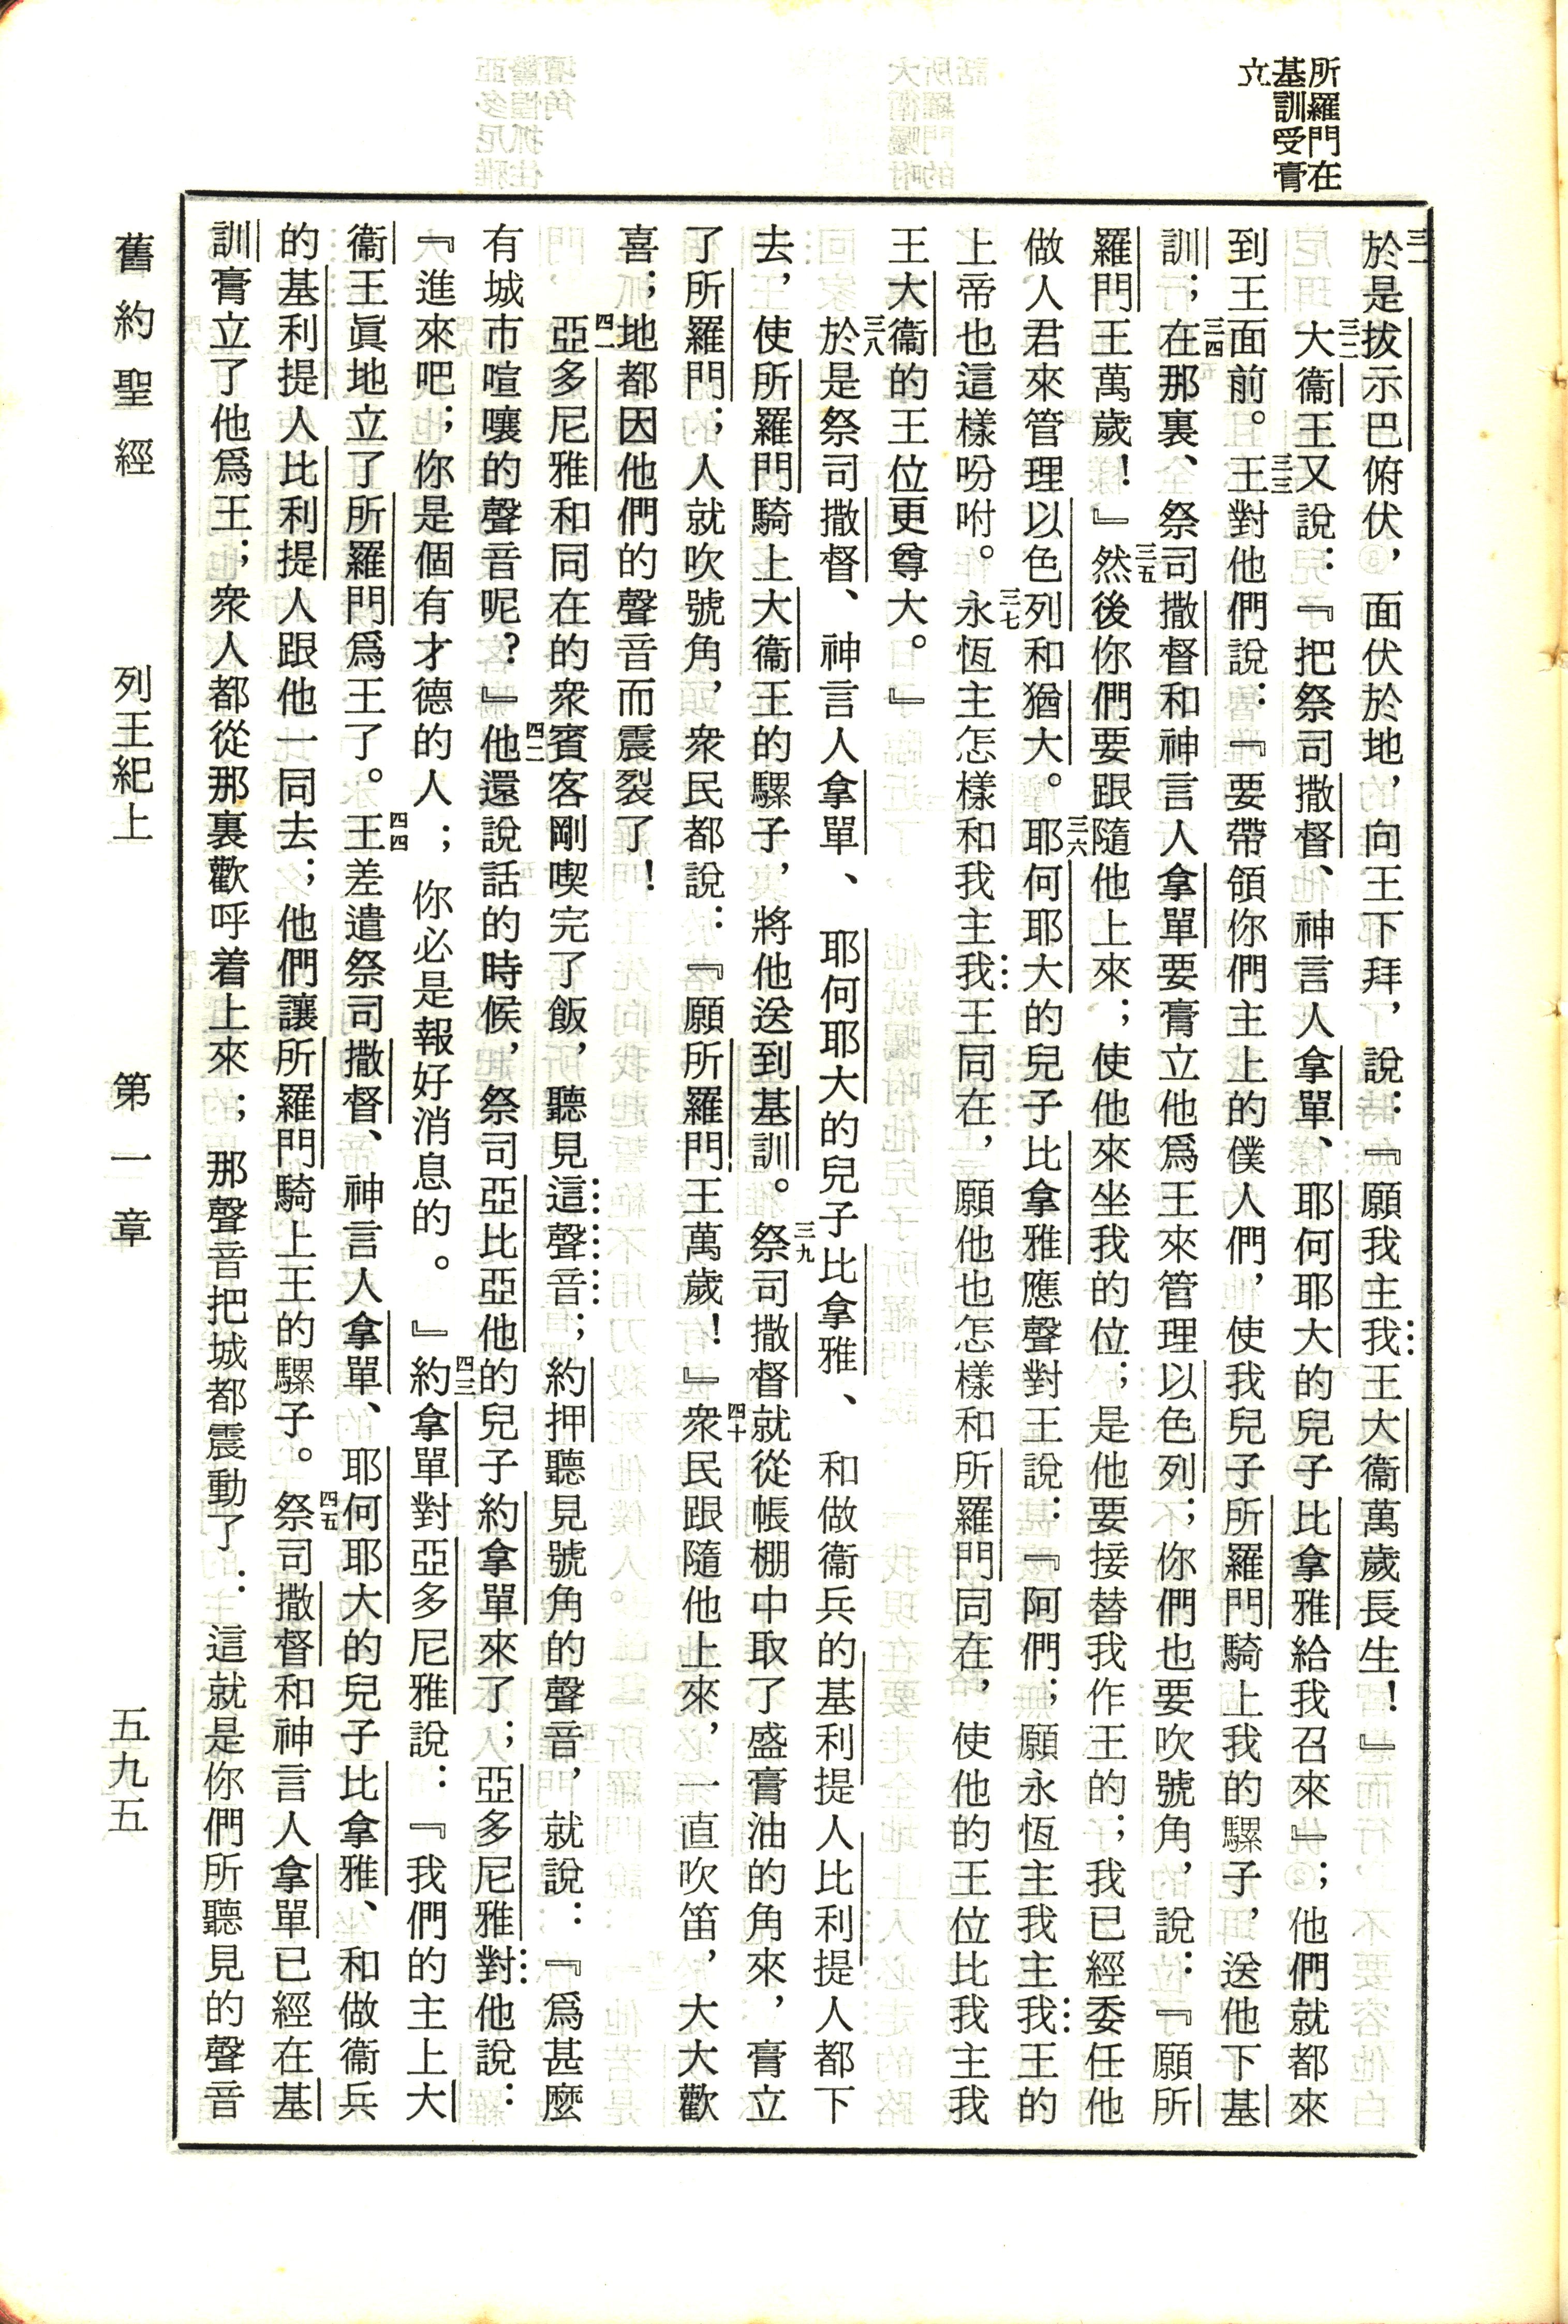 所羅門在
基訓受膏
立
三一於是拔示巴俯伏，面伏於地，向王下拜，說：『願我主我王大衞萬歲長生！』
三二大衞王又說：『把祭司撒督、神言人拿單、耶何耶大的兒子比拿雅給我召來』；他們就都來
到王面前。三三王對他們說：『要帶領你們主上的僕人們，使我兒子所羅門騎上我的騾子，送他下基
訓；三四在那裏、祭司撒督和神言人拿單要膏立他爲王來管理以色列；你們也要吹號角，說：『願所
羅門王萬歲！』三五然後你們要跟隨他上來；使他來坐我的位；是他要接替我作王的；我已經委任他
做人君來管理以色列和猶大。三六耶何耶大的兒子比拿雅應聲對王說：『阿們；願永恆主我主我王的
上帝也這樣吩咐。三七永恆主怎樣和我主我王同在，願他也怎樣和所羅門同在，使他的王位比我主我
王大衞的王位更尊大。』
三八於是祭司撒督、神言人拿單、耶何耶大的兒子比拿雅、和做衞兵的基利提人比利提人都下
去，使所羅門騎上大衞王的騾子，將他送到基訓。三九祭司撒督就從帳棚中取了盛膏油的角來，膏立
了所羅門；人就吹號角，衆民都說：『願所羅門王萬歲！』四十衆民跟隨他上來，一直吹笛，大大歡
喜；地都因他們的聲音而震裂了！
四一亞多尼雅和同在的衆賓客剛喫完了飯，聽見這聲音；約押聽見號角的聲音，就說：『爲甚麼
有城市喧嚷的聲音呢？』四二他還說話的時候，祭司亞比亞他的兒子約拿單來了；亞多尼雅對他說：
『進來吧；你是個有才德的人；你必是報好消息的。』四三約拿單對亞多尼雅說：『我們的主上大
衞王眞地立了所羅門爲王了。四四王差遣祭司撒督、神言人拿單、耶何耶大的兒子比拿雅、和做衞兵
的基利提人比利提人跟他一同去；他們讓所羅門騎上王的騾子。四五祭司撒督和神言人拿單已經在基
訓膏立了他爲王；衆人都從那裏歡呼着上來；那聲音把城都震動了：這就是你們所聽見的聲音
舊約聖經　列王紀上　第一章　五九五